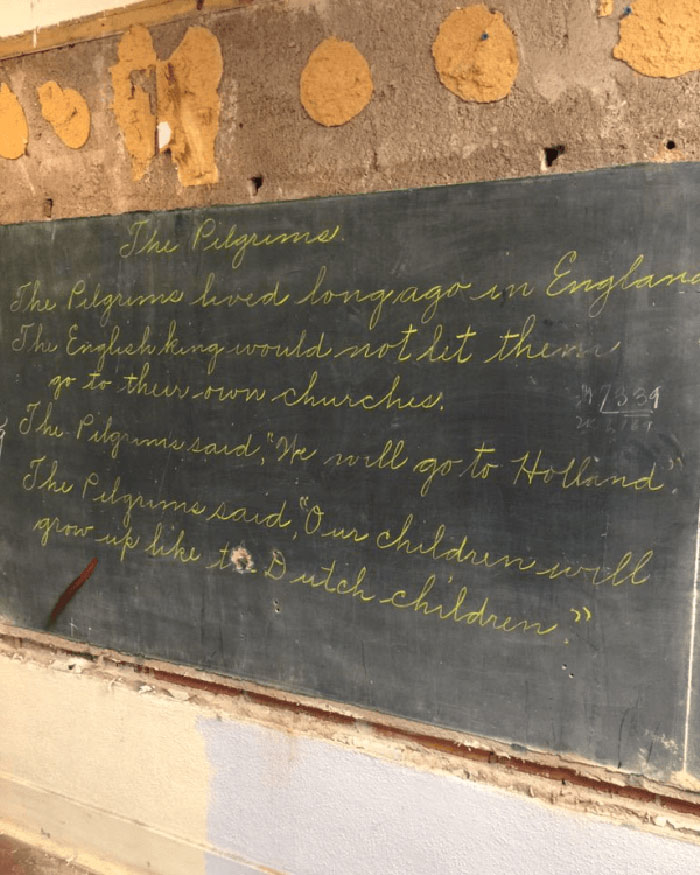 The Pilgrims.
The Pilgrims lived long ago in England
The English king would not let them
go to their own churches.
The Pilgrims said, "We will go to Holland."
The Pilgrims said, "Our children will
grow up like to Dutch children."
7339